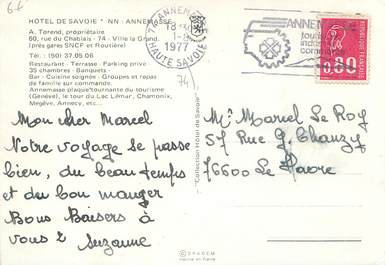 HOTEL DE SAVOIE * NN : ANNEMASSE
A. Torend, propriétaire
60, rue du Chablais - 74 - Ville la Grand
(près gares SNCF et Routière)
Tél. : (50) 37.05.06
Restaurant - Terrasse - Parking privé
35 chambres - Banquets -
Bar - Cuisine soignée - Groupes et repas
de famille sur commande.
Annemasse plaque tournante du tourisme
(Genève), le tour du Lac Léman, Chamonix,
Megève, Annecy, etc...
Mon cher Marcel
Notre voyage se passe
bien, du beau temps
et du bon manger
Bons Baisers à
vous 2 Suzanne
74
ANNEMASSE
18
1977
HAUTE SAVOIE
ANNEMASSE
tourisme
industrie
commerce
0,80
Collection Hôtel de Savoie
Mr Marcel Le Roy
57 Rue G. Chauzy
76600 Le Havre
© SPADEM